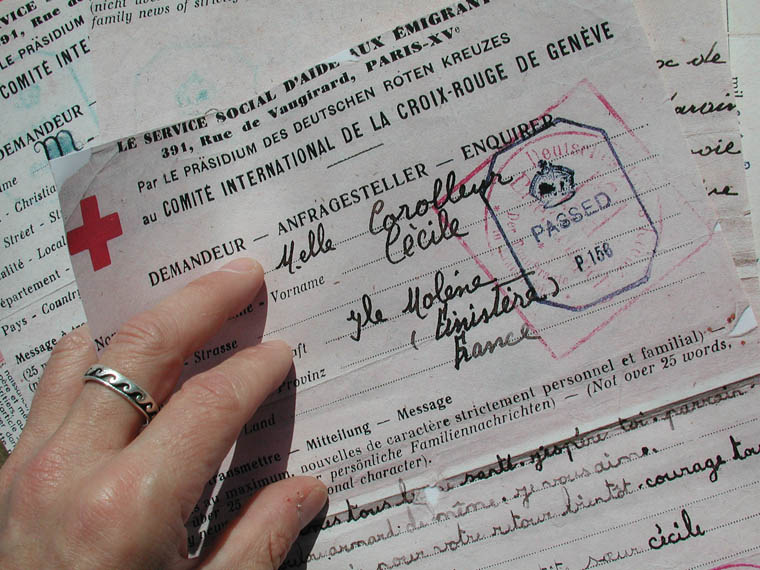 (nicht über
family news of strictly
SERVICE
391, Rue de
LE PRÄSIDIUM
COMITÉ INT
DEMANDEUR
Name
Christian
Street - St
Local
Département
Pays - Country
Message à
(25
LE SERVICE SOCIAL D'AIDE AUX EMIGRANT
391, Rue de Vaugirard, PARIS-XVe
Par LE PRÄSIDIUM DES DEUTSCHEN ROTEN KREUZES
au COMITÉ INTERNATIONAL DE LA CROIX-ROUGE DE GENÈVE
DEMANDEUR — ANFRAGESTELLER — ENQUIRER
Nom
Melle Corolleur
Vorname
Cécile
Strasse
yle Molène
aft
(Finistère)
Provinz
France
Land
PASSED
P 156
transmettre — Mitteilung — Message
au maximum, nouvelles de caractère strictement personnel et familial) —
über 25 persönliche Familiennachrichten) — (Not over 25 words,
family news of onal character).
tous santé. j'espère toi parrain
armand de même. je vous aime.
pour votre retour bientôt. courage
sœur cécile
de
parrain